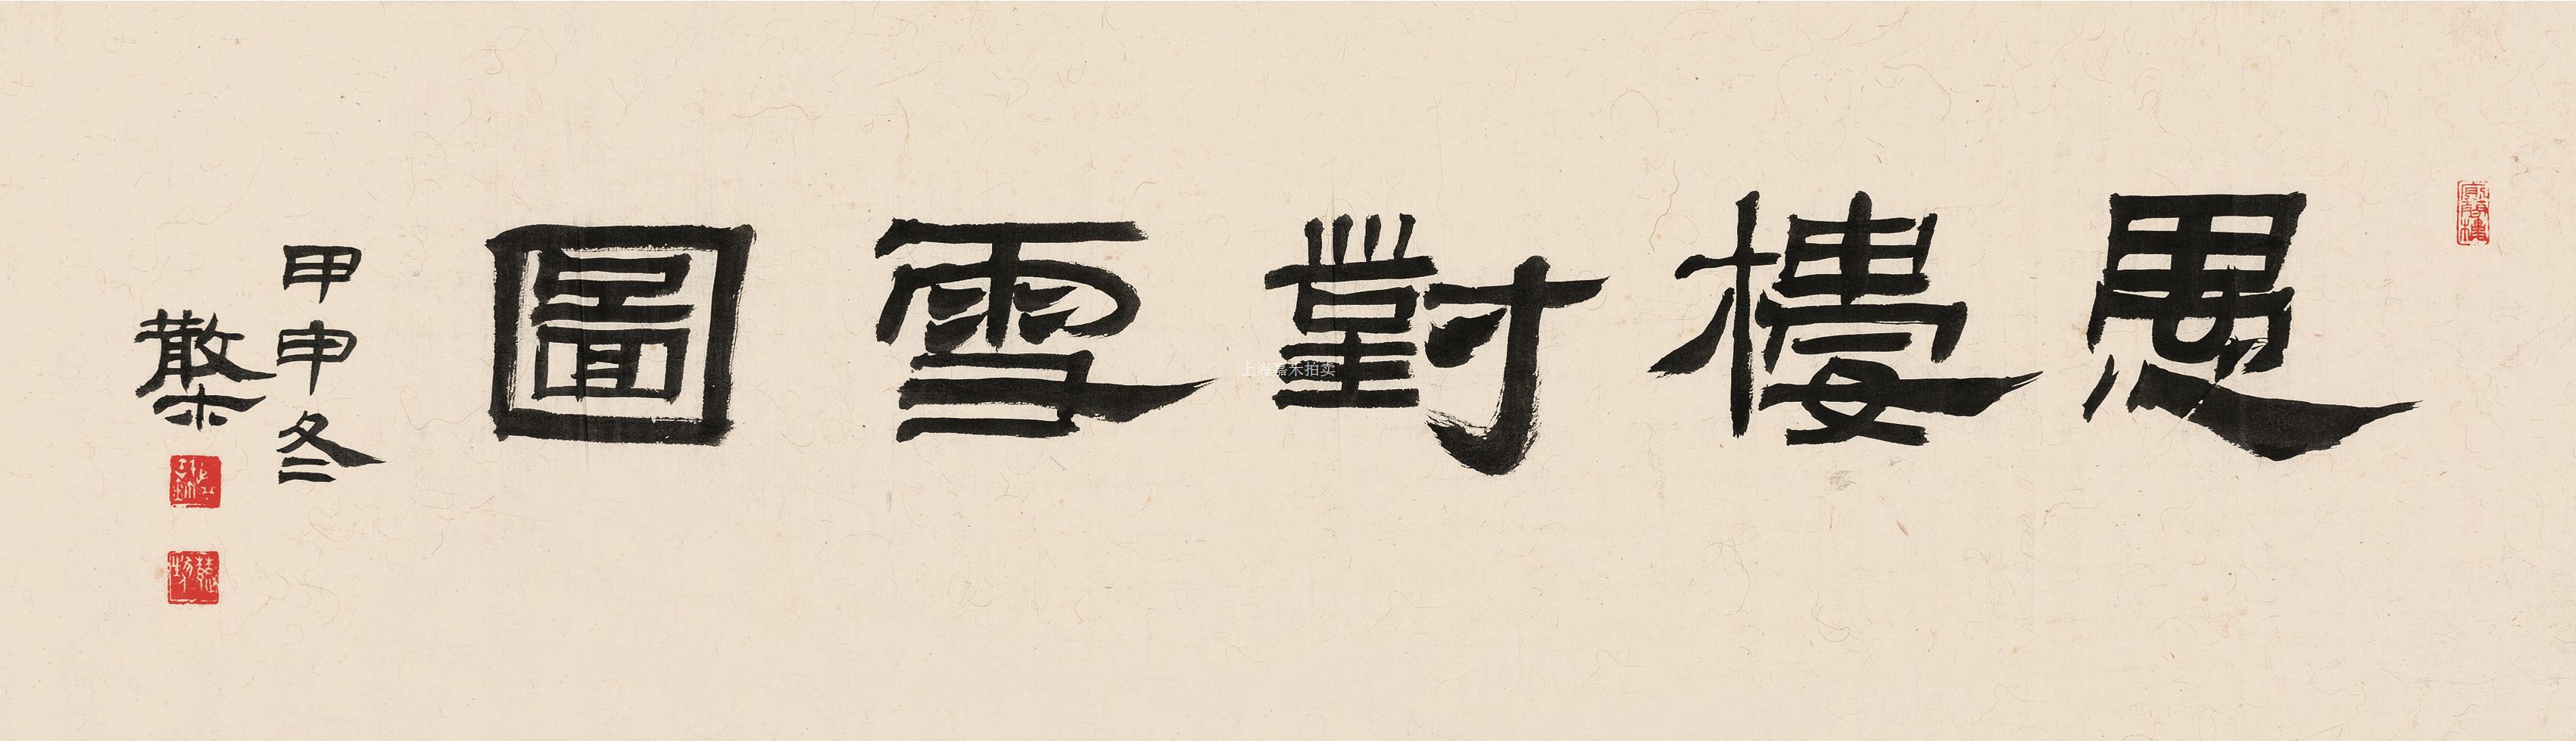 愚樓對雪圖
甲申冬
散木
上海嘉禾拍卖